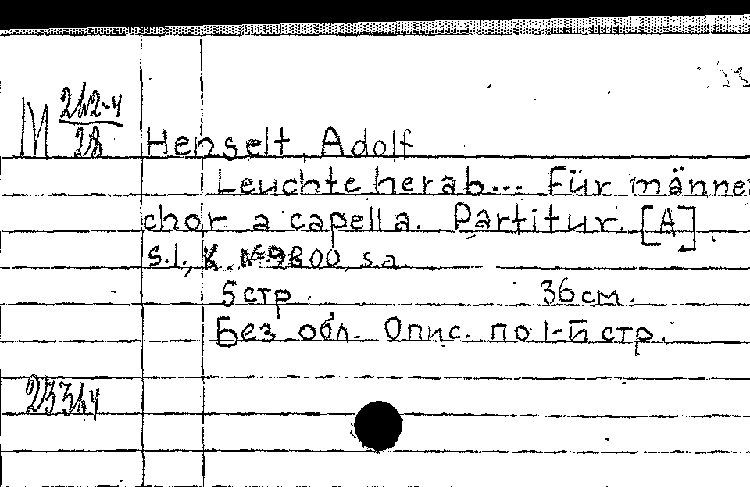 М 212-4/28
Henselt Adolf
Leuchte herab... Für männer
chor a capella. Partitur. [A]
s.l., К. №9800, s.a.
5 стр. 36 см.
Без обл. Опис. по 1-й стр.